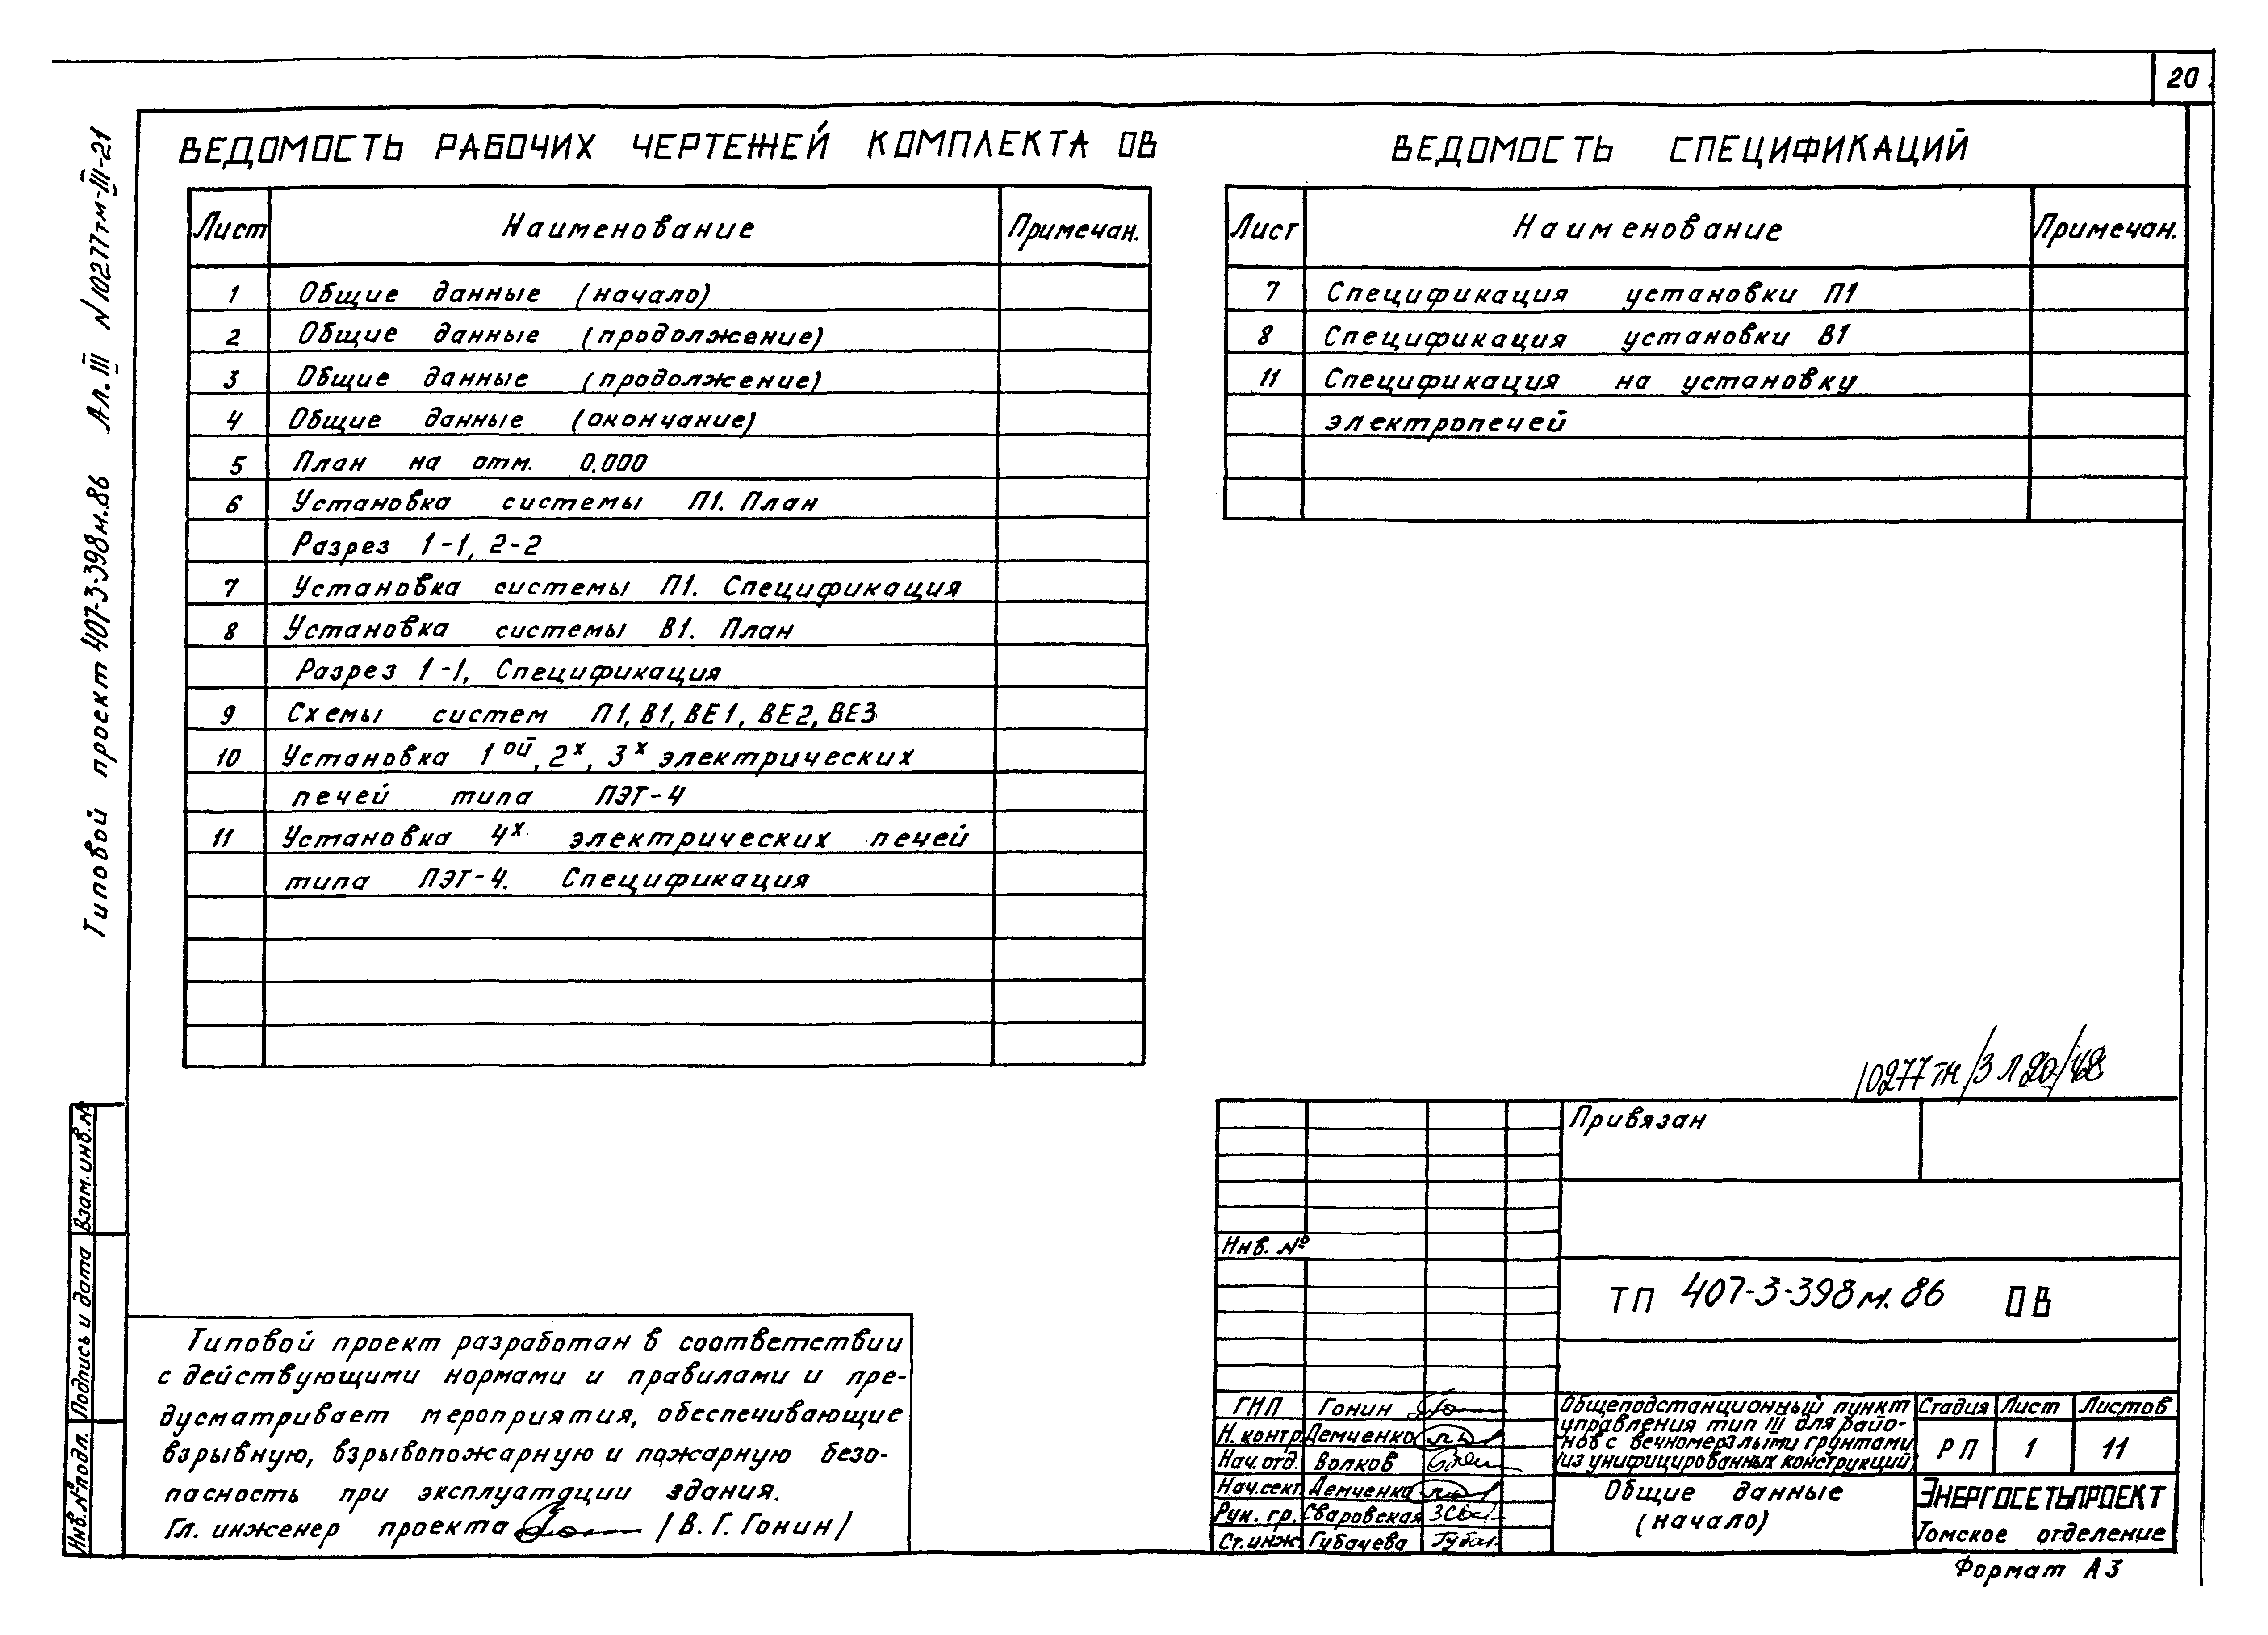 20
Типовой проект 407-3-398м.86 Ал. III N 10277тм-III-21
ВЕДОМОСТЬ РАБОЧИХ ЧЕРТЕЖЕЙ КОМПЛЕКТА ОВ
Лист Наименование Примечан.
1 Общие данные (начало)
2 Общие данные (продолжение)
3 Общие данные (продолжение)
4 Общие данные (окончание)
5 План на отм. 0.000
6 Установка системы П1. План
Разрез 1-1, 2-2
7 Установка системы П1. Спецификация
8 Установка системы В1. План
Разрез 1-1, Спецификация
9 Схемы систем П1, В1, ВЕ1, ВЕ2, ВЕ3
10 Установка 1ой, 2х, 3х электрических
печей типа ПЭТ-4
11 Установка 4х электрических печей
типа ПЭТ-4. Спецификация
ВЕДОМОСТЬ СПЕЦИФИКАЦИЙ
Лист Наименование Примечан.
7 Спецификация установки П1
8 Спецификация установки В1
11 Спецификация на установку
электропечей
10277тм/3 Л 20/42
Взам. инв. №
Подпись и дата
Инв. № подл.
Типовой проект разработан в соответствии
с действующими нормами и правилами и пре-
дусматривает мероприятия, обеспечивающие
взрывную, взрывопожарную и пожарную безо-
пасность при эксплуатации здания.
Гл. инженер проекта /В. Г. Гонин/
Привязан
Инв. №
ТП 407-3-398м.86 ОВ
ГИП Гонин
Н. контр. Демченко
Нач. отд. Волков
Нач. сект. Демченко
Рук. гр. Сваровская
Ст. инж. Губачева
Общеподстанционный пункт
управления тип III для райо-
нов с вечномерзлыми грунтами
из унифицированных конструкций
Стадия Лист Листов
РП 1 11
Общие данные
(начало)
ЭНЕРГОСЕТЬПРОЕКТ
Томское отделение
Формат А3